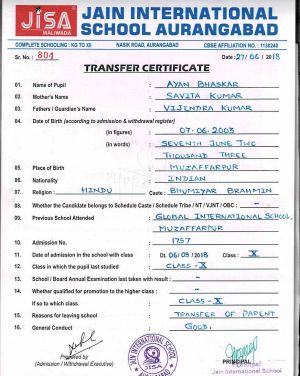 JAIN INTERNATIONAL
JISA SCHOOL AURANGABAD
MALIWADA
COMPLETE SCHOOLING : KG TO XII NASIK ROAD, AURANGABAD CBSE AFFILIATION NO. : 1130240
Sr. No. : 804 Date : 27/06/2018
TRANSFER CERTIFICATE
01. Name of Pupil : AYAN BHASKAR
02. Mother's Name : SAVITA KUMAR
03. Fathers / Guardian's Name : VIJENDRA KUMAR
04. Date of Birth (according to admission & withdrawal register)
(in figures) : 07.06.2003
(in words) : SEVENTH JUNE TWO
THOUSAND THREE
05. Place of Birth : MUZAFFARPUR
06. Nationality : INDIAN
07. Religion : HINDU Caste : BHUMIYAR BRAHMIN
08. Whether the Candidate belongs to Schedule Caste / Schedule Tribe / NT / VJNT / OBC : –
09. Previous School Attended : GLOBAL INTERNATIONAL SCHOOL,
MUZAFFARPUR
10. Admission No. : 1757
11. Date of admission in the school with class : Dt. 06/03/2018 Class : X
12. Class in which the pupil last studied : CLASS-X
13. School / Board Annual Examination last taken with result : –
14. Whether qualified for promotion to the higher class : –
If so to which class : CLASS-X
15. Reasons for leaving school : TRANSFER OF PARENT
16. General Conduct : GOOD.
Prepared by
(Admission / Withdrawal Executive)
JAIN INTERNATIONAL SCHOOL
JISA
PRINCIPAL
Principal
Jain International School